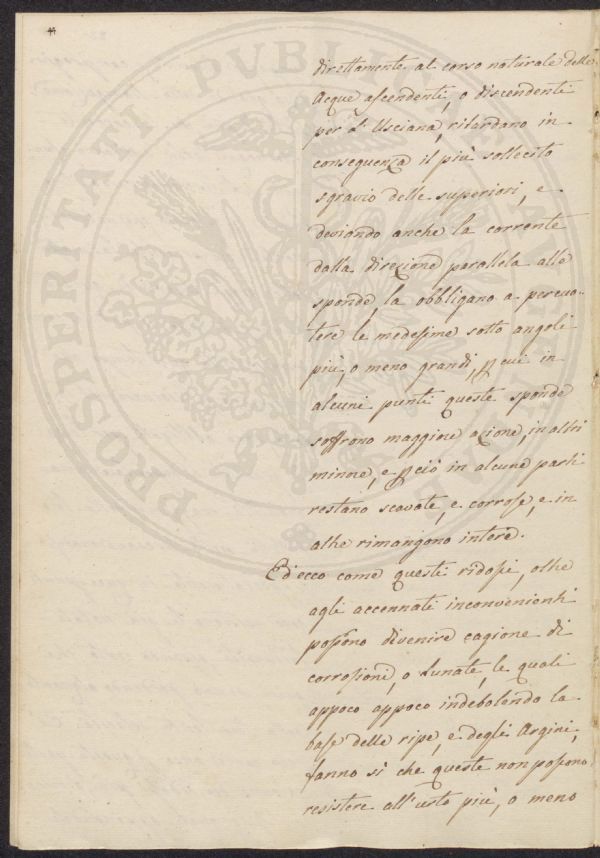 direttamente al corso naturale delle
Acque ascendenti, o discendenti
per l'Usciana, ritardano in
conseguenza il più sollecito
sgravio delle superiori, e
deviando anche la corrente
dalla direzione parallela alle
sponde, la obbligano a percuo-
tere le medesime sotto angoli
più, o meno grandi, p cui in
alcuni punti queste sponde
soffrono maggiore azione, in altri
minore, e p ciò in alcune parti
restano scavate, e corrose, e in
altre rimangono intere.
Ed ecco come questi ridossi, oltre
agli accennati inconvenienti
possono divenire cagione di
corrosioni, o Lunate, le quali
appoco appoco indebolendo la
base delle ripe, e degli Argini,
fanno sì che queste non possono
resistere all'urto più, o meno
PROSPERITATI PVBLI